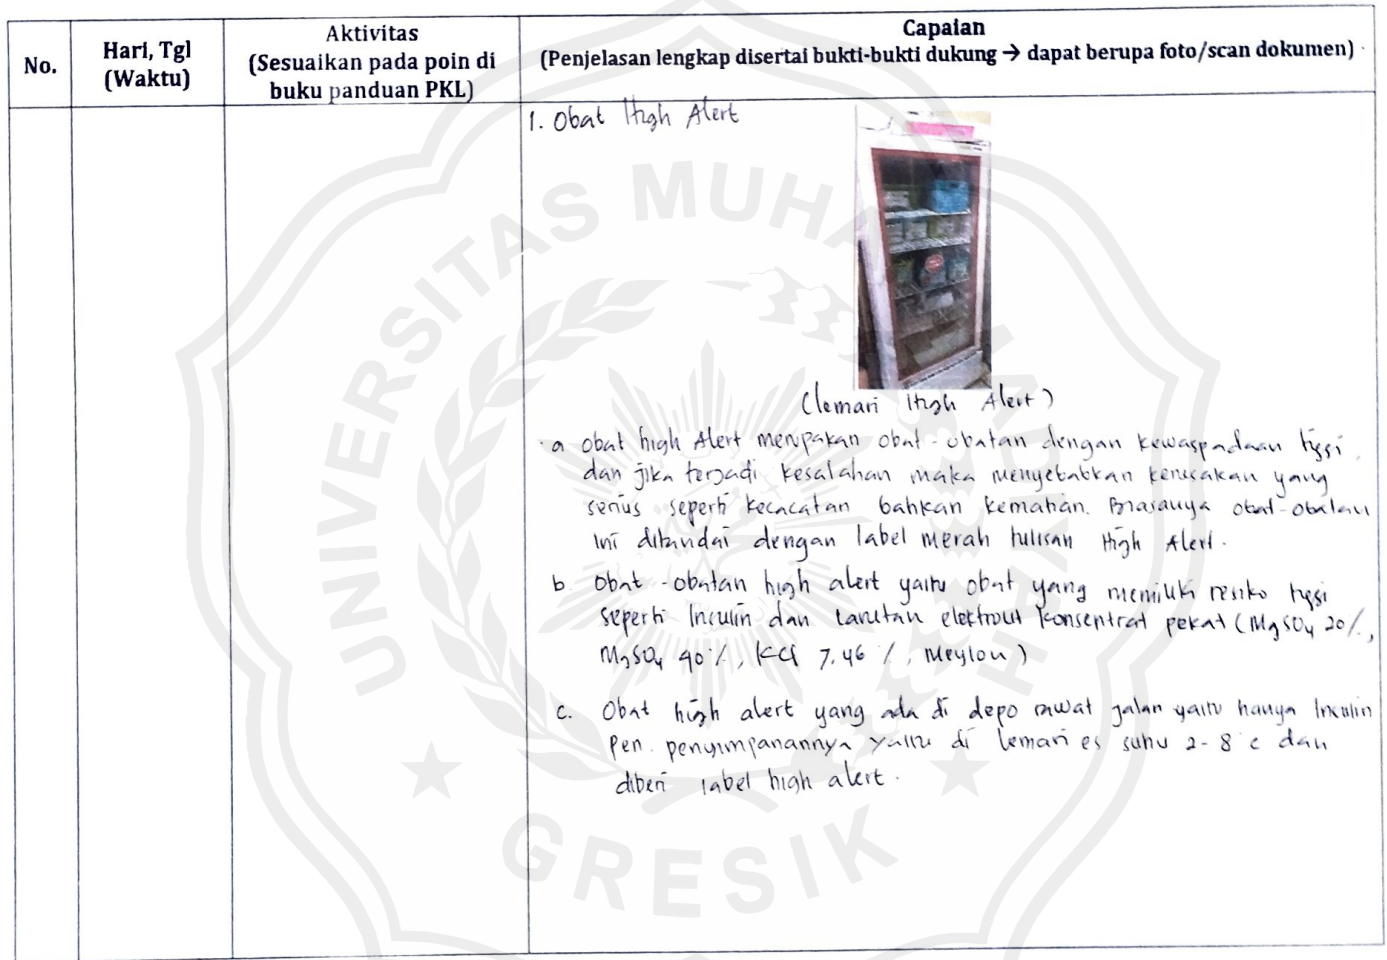 No.
Hari, Tgl
(Waktu)
Aktivitas
(Sesuaikan pada poin di
buku panduan PKL)
Capaian
(Penjelasan lengkap disertai bukti-bukti dukung → dapat berupa foto/scan dokumen)
1. Obat High Alert
(lemari High Alert)
a Obat high Alert merupakan obat-obatan dengan kewaspadaan tiggi,
dan jika terjadi kesalahan maka menyebabkan kerusakan yang
serius seperti kecacatan bahkan kematian. Biasanya obat-obatan
ini ditandai dengan label merah tulisan High Alert.
b. Obat-obatan high alert yaitu obat yang memiliki resiko tiggi
seperti Insulin dan larutan elektrolit konsentrat pekat (MgSO4 20%,
MgSO4 40%, KCl 7.46 %, Meylon)
c. Obat high alert yang ada di depo rawat jalan yaitu hanya Insulin
Pen. penyimpanannya yaitu di lemari es suhu 2-8°c dan
diberi label high alert.
UNIVERSITAS MUHAMMADIYAH
GRESIK